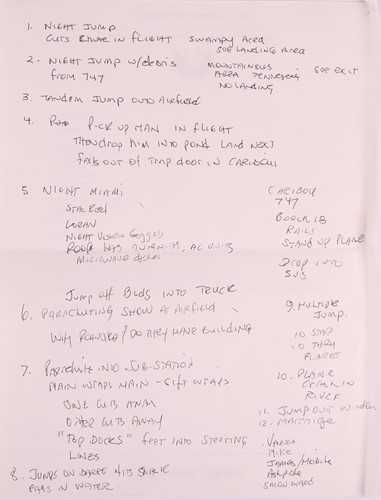 1. NIGHT JUMP
CUTS CHUTE IN FLIGHT SWAMPY AREA
FOR LANDING AREA
2. NIGHT JUMP w/debris MOUNTAINOUS FOR EXIT
from 747 AREA TENNESSEE
NO LANDING
3. TANDEM JUMP ONTO AIRFIELD
4. PICK UP MAN IN FLIGHT
Then drop him into pond LAND NEXT
falls out of TRAP door in CARIBOU
5 NIGHT MIAMI
LORAN
NIGHT VISION Goggles
ROOF HAS ANTENNAS, AC UNITS
MICROWAVE dishes
Jump off Bldgs INTO TRUCK
6. PARACHUTING SHOW AT AIRFIELD
WHY / DO THEY HAVE BUILDING
7. PARACHUTE INTO SUB-STATION
MAIN WRAPS MAIN - GIFT WRAPS
ONE CUTS AWAY
OTHER CUTS AWAY
"TOP DOCKS" FEET INTO STEERING
LINES
8. JUMPS ON HITS
IN WATER.
CARIBOU
747
BEECH 18
RAILS
STAND UP PLANE
DROP INTO
SUB
9. MULTIPLE
JUMP.
10 STAR
10 THRU
FLARES
10. PLANE
CRASH IN
RIVER
11. JUMP OUT WINDOW
12. MARRIAGE
Mike
James/Mobile